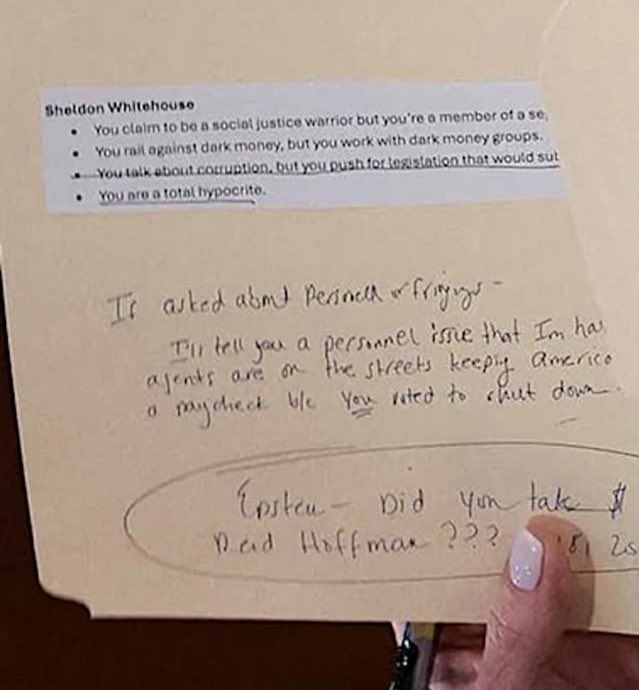 Sheldon Whitehouse
• You claim to be a social justice warrior but you're a member of a se
• You rail against dark money, but you work with dark money groups.
• You talk about corruption, but you push for legislation that would sub
• You are a total hypocrite.
If asked about Personell or firings -
I'll tell you a personnel issue that Im ha
agents are on the streets keepig America
a paycheck b/c you voted to shut down.
Epstein - Did you take $
Reid Hoffman ???